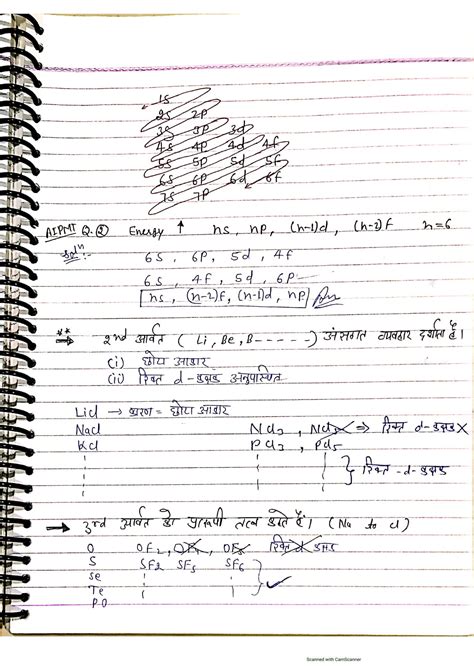 1s
2s 2p
3s 3p 3d
4s 4p 4d 4f
5s 5p 5d 5f
6s 6p 6d 6f
7s 7p
AIPMT Q.② Energy ↑ ns, np, (n-1)d, (n-2)f n=6
Solⁿ:- 6s, 6p, 5d, 4f
6s, 4f, 5d, 6p
ns, (n-2)f, (n-1)d, np
** ⇒ 2nd आवर्त (Li, Be, B-----) असंगत व्यवहार दर्शाता है।
(i) छोटा आकार
(ii) रिक्त d-कक्षक अनुपस्थित
LiCl → कारण = छोटा आकार
NaCl NCl3, NCl5 ⇒ रिक्त d-कक्षक X
KCl PCl3, PCl5
} रिक्त-d-कक्षक
⇒ 3rd आवर्त को प्ररूपी तत्व कहते हैं। (Na to Cl)
O OF2, रिक्त d कक्षक
S SF2 SF6
Se
Te
Po
Scanned with CamScanner